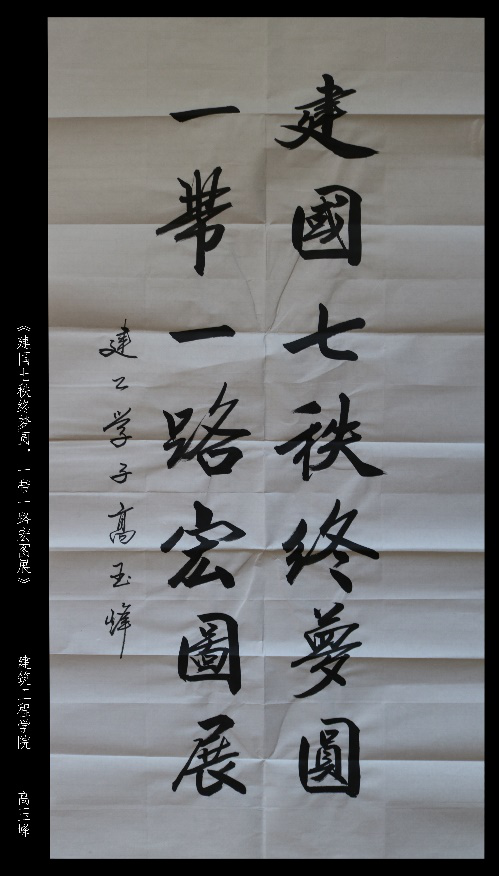 建國七秩終夢圓
一帶一路宏圖展
建工学子高玉峰
《建国七秩终梦圆，一带一路宏图展》
建筑工程学院
高玉峰